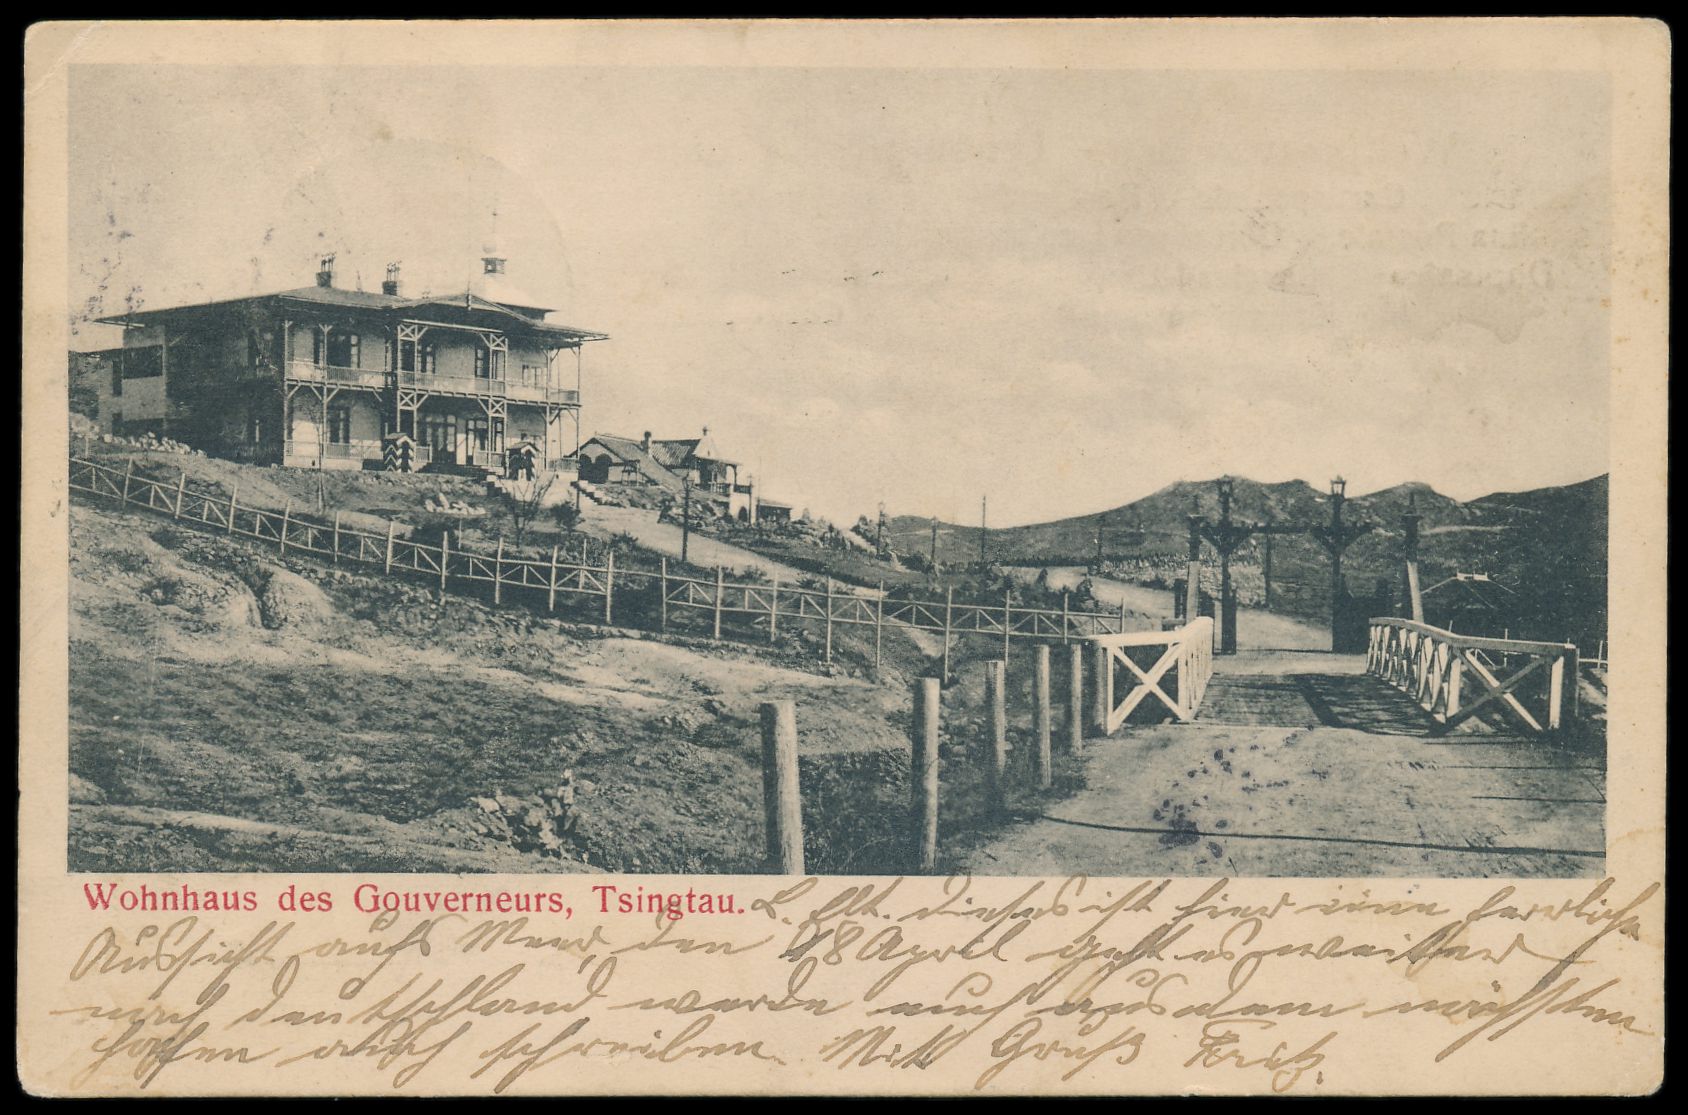 Wohnhaus des Gouverneurs, Tsingtau. L. Elt. dieses ist hier eine herrliche
Aussicht aufs Meer, den 18 April geht es weiter
nach deutschland werde euch aus dem nächsten
hafen auch schreiben. Mit Gruß Fritz.